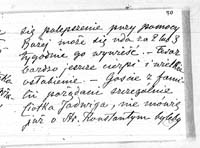 50
się polepszenie przy pomocy
Bożej może się uda za 2 lub 3
tygodnie go wywieść. – Teraz
bardzo jeszcze cierpi i wielkie
osłabienie. – Goście z
są pożądani szczególnie
ciotka Jadwiga, nie mówię
już o Konstantym byłaby